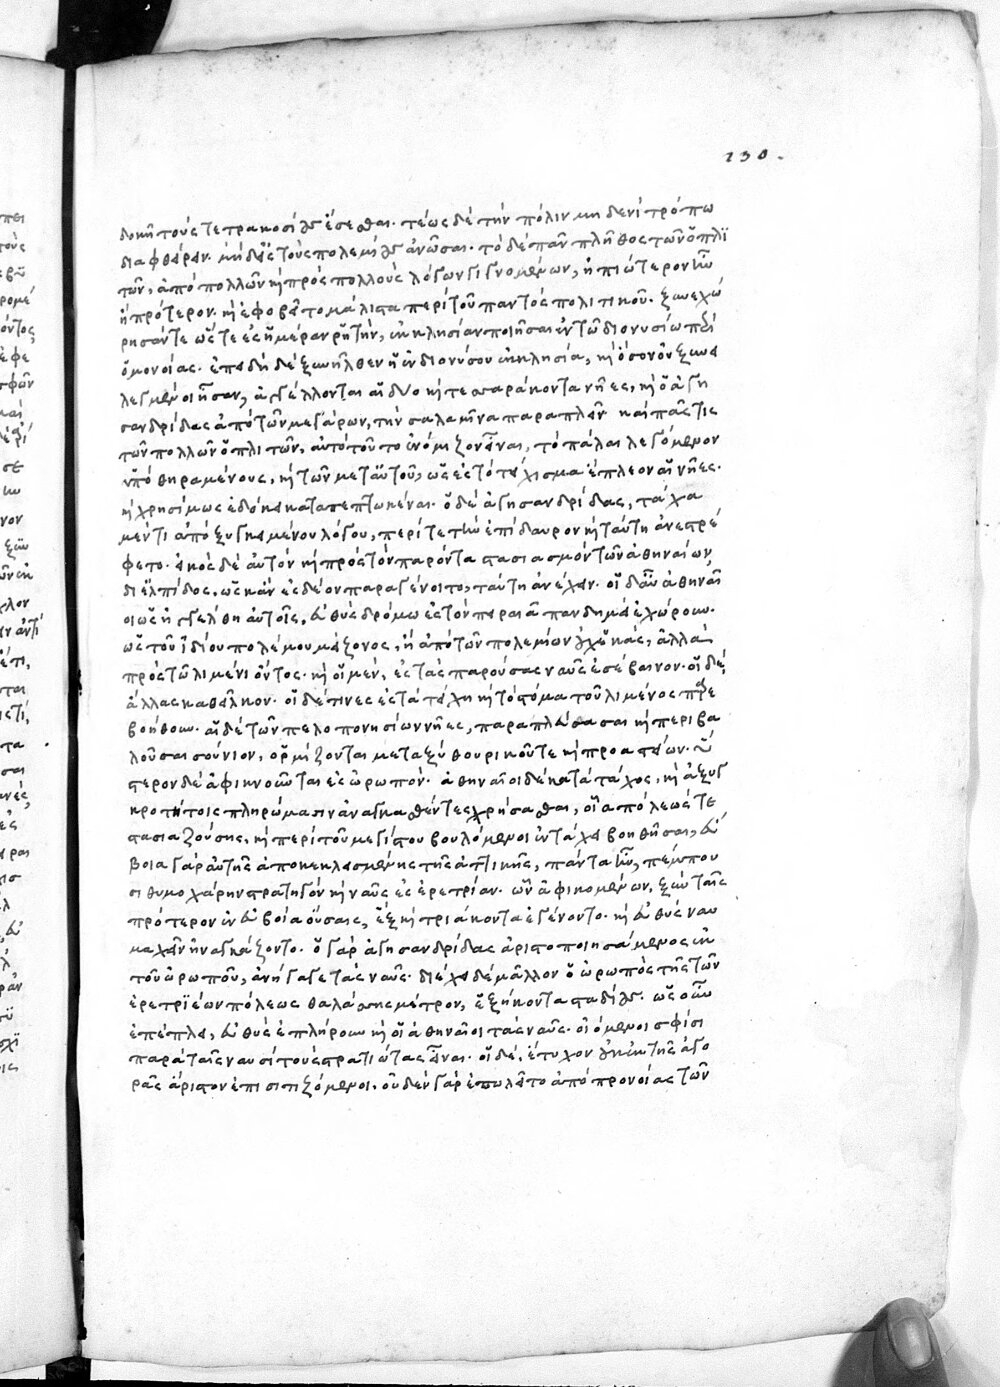 δοκῆ τοὺς τετρακοσίους ἔσεσθαι· τέως δὲ τὴν πόλιν μηδενὶ τρόπω
διαφθείρειν· μὴδ' ἐς τοὺς πολεμίους ἀνῶσαι· τὸ δὲ πᾶν πλῆθος τῶν ὁπλι
τῶν, ἀπὸ πολλῶν καὶ πρὸς πολλοὺς λόγων γιγνομένων, ἠπιώτερον ἦν
ἢ πρότερον· καὶ ἐφοβεῖτο μάλιστα περὶ τοῦ παντὸς πολιτικοῦ· ξυνεχώ
ρησάν τε ὥστε ἐς ἡμέραν ῥητὴν, ἐκκλησίαν ποιῆσαι ἐν τῶ διονυσίω περὶ
ὁμονοίας· ἐπειδὴ δὲ ξυνῆλθεν ἡ ἐν διονύσου ἐκκλησία, καὶ ὅσον οὐ ξυνει
λεγμένοι ἦσαν, ἀγγέλλονται αἱ δύο καὶ τεσσαράκοντα νῆες, καὶ ὁ ἀγη
σανδρίδας ἀπὸ τῶν μεγάρων, τὴν σαλαμῖνα παραπλεῖν καὶ πᾶς τις
τῶν πολλῶν ὁπλιτῶν, αὐτὸ τοῦτο ἐνόμιζον εἶναι, τὸ πάλαι λεγόμενον
ὑπὸ θηραμένους, καὶ τῶν μετ' αὐτοῦ, ὡς ἐς τὸ τείχισμα ἔπλεον αἱ νῆες·
καὶ χρησίμως ἐδόκει καταπεπτωκέναι· ὁ δὲ ἀγησανδρίδας, τάχα
μέν τι ἀπὸ ξυγκειμένου λόγου, περί τε τὴν ἐπίδαυρον καὶ ταύτη ἀνεστρέ
φετο· εἰκὸς δὲ αὐτὸν καὶ πρὸς τὸν παρόντα στασιασμὸν τῶν ἀθηναίων,
δι' ἐλπίδος, ὡς κἂν ἐς δέον παραγένοιτο, ταύτη ἀνέχειν· οἱ δ' αὖ ἀθηναῖ
οι ὡς ἠγγέλθη αὐτοῖς, εὐθὺς δρόμω ἐς τὸν πειραιᾶ πανδημεὶ ἐχώρουν·
ὡς τοῦ ἰδίου πολέμου μείζονος, ἢ ἀπὸ τῶν πολεμίων οὐχ ἑκὰς, ἀλλὰ
πρὸς τῶ λιμένι ὄντος· καὶ οἱ μὲν, ἐς τὰς παρούσας ναῦς ἐσέβαινον· οἱ δὲ,
ἄλλας καθεῖλκον· οἱ δέ τινες ἐς τὰ τείχη καὶ τὸ στόμα τοῦ λιμένος παρε
βοήθουν· αἱ δὲ τῶν πελοπονησίων νῆες, παραπλεύσασαι καὶ περιβα
λοῦσαι σούνιον, ὁρμίζονται μεταξὺ θορικοῦ τε καὶ πρασιῶν· ὕ
στερον δὲ ἀφικνοῦνται ἐς ὠρωπόν· ἀθηναῖοι δὲ κατὰ τάχος, καὶ ἀξυγ
κροτήτοις πληρώμασιν ἀναγκασθέντες χρήσασθαι, οἷα πόλεώς τε
στασιαζούσης, καὶ περὶ τοῦ μεγίστου βουλόμενοι ἐν τάχει βοηθῆσαι, εὔ
βοια γὰρ αὐτῆς ἀποκεκλεισμένης τῆς ἀττικῆς, πάντα ἦν, πέμπου
σι θυμοχάρην στρατηγὸν καὶ ναῦς ἐς ἐρετρίαν· ὧν ἀφικομένων, ξὺν ταῖς
πρότερον ἐν εὐβοία οὔσαις, ἓξ καὶ τριάκοντα ἐγένοντο· καὶ εὐθὺς ναυ
μαχεῖν ἠναγκάζοντο· ὁ γὰρ ἀγησανδρίδας ἀριστοποιησάμενος ἐκ
τοῦ ὠρωποῦ, ἀνήγαγε τὰς ναῦς· διέχει δὲ μᾶλλον ὁ ὠρωπὸς τῆς τῶν
ἐρετριέων πόλεως θαλάσσης μέτρον, ἑξήκοντα σταδίους· ὡς οὖν
ἐπέπλει, εὐθὺς ἐπλήρουν καὶ οἱ ἀθηναῖοι τὰς ναῦς· οἰόμενοι σφίσι
παρὰ ταῖς ναυσὶ τοὺς στρατιώτας εἶναι· οἱ δὲ, ἔτυχον οὐκ ἐκ τῆς ἀγο
ρᾶς ἄριστον ἐπισιτιζόμενοι. οὐδὲν γὰρ ἐπωλεῖτο ἀπὸ προνοίας τῶν